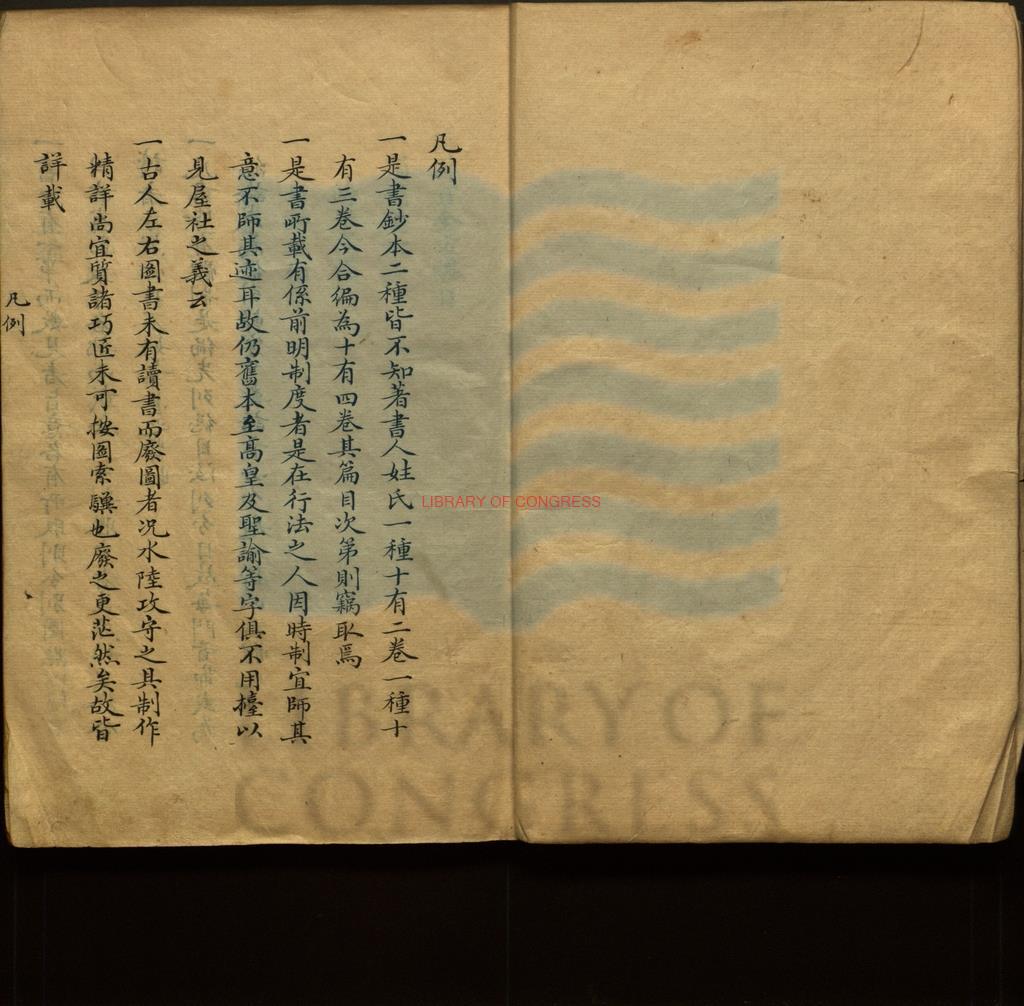 凡例
一是書鈔本二種皆不知著書人姓氏一種十有二卷一種十
有三卷今合編為十有四卷其篇目次第則竊取焉
一是書所載有係前明制度者是在行法之人因時制宜師其
意不師其迹耳故仍舊本至高皇及聖諭等字俱不用擡以
見屋社之義云
一古人左右圖書未有讀書而廢圖者况水陸攻守之具制作
精詳尚宜質諸巧匠未可按圖索驥也廢之更茫然矣故皆
詳載
凡例
LIBRARY OF CONGRESS
LIBRARY OF
CONGRESS